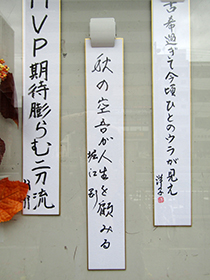 古希過ぎて今頃ひとのウラが見え
洋子
秋の空吾が人生を顧みる
堀江剛
MVP期待膨らむ二刀流